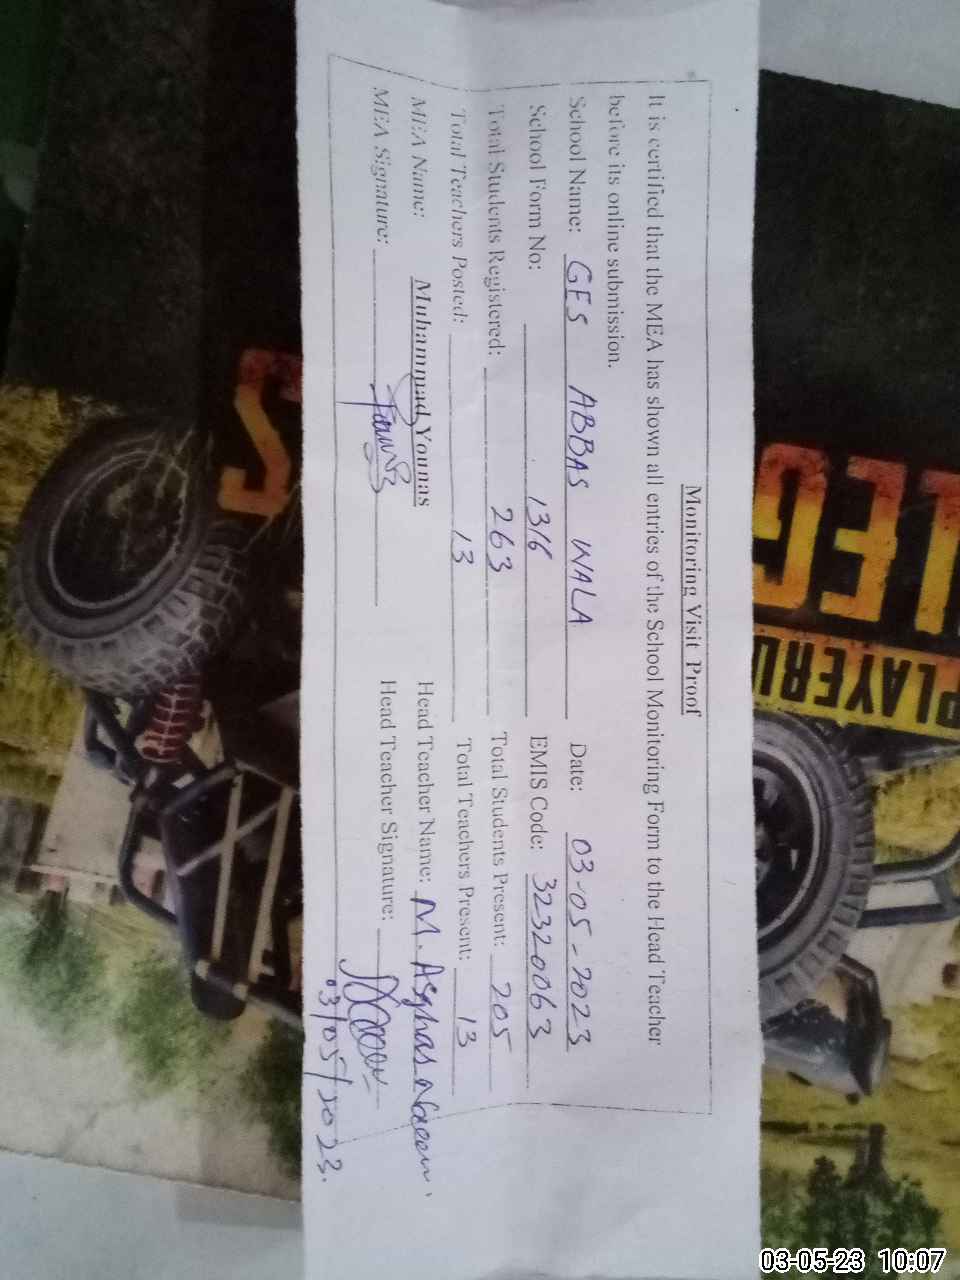 Monitoring Visit Proof
It is certified that the MEA has shown all entries of the School Monitoring Form to the Head Teacher
before its online submission.
School Name: GES ABBAS WALA Date: 03-05-2023
School Form No: 1316 EMIS Code: 32320063
Total Students Registered: 263 Total Students Present: 205
Total Teachers Posted: 13 Total Teachers Present: 13
MEA Name: Muhammad Younas Head Teacher Name: M. Asghar Naeem.
MEA Signature: Head Teacher Signature:
03/05/2023.
S
LEG
PLAYERU
03-05-23 10:07